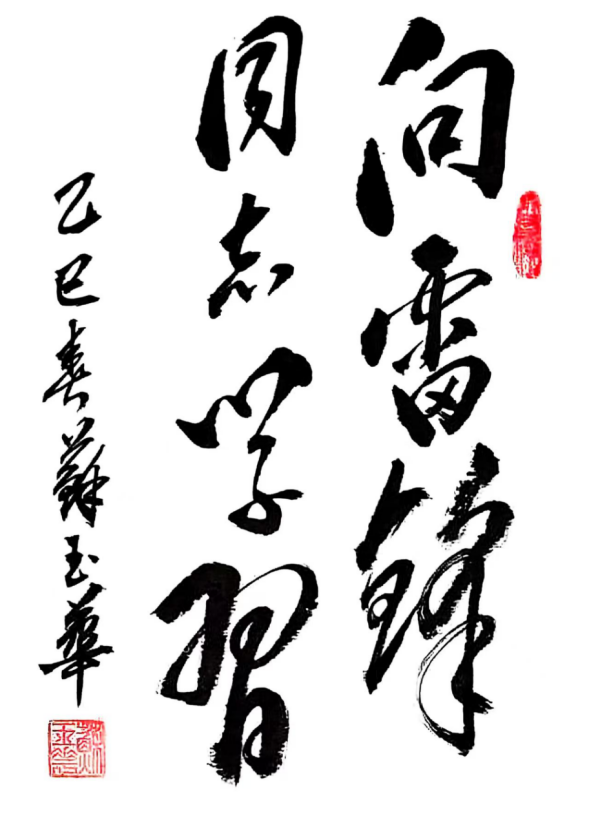 向雷锋
同志学习
乙巳春蘇玉華